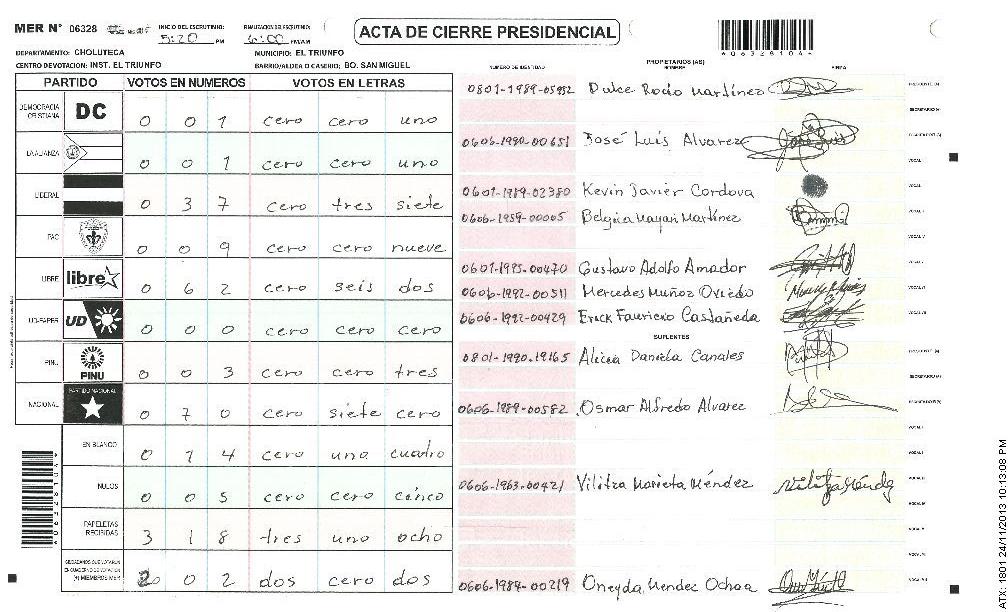 MER N° 06328 INICIO DEL ESCRUTINIO: 5:20 PM FINALIZACION DEL ESCRUTINIO: 6:00 PM/AM
ACTA DE CIERRE PRESIDENCIAL
*06328104*
DEPARTAMENTO: CHOLUTECA MUNICIPIO: EL TRIUNFO
CENTRO DE VOTACION: INST. EL TRIUNFO BARRIO/ALDEA O CASERIO: BO. SAN MIGUEL
PARTIDO VOTOS EN NUMEROS VOTOS EN LETRAS
DEMOCRACIA CRISTIANA DC 0 0 1 cero cero uno
LA ALIANZA 0 0 1 cero cero uno
LIBERAL 0 3 7 cero tres siete
PAC 0 0 9 cero cero nueve
LIBRE libre 0 6 2 cero seis dos
UD-FAPER UD 0 0 0 cero cero cero
PINU PINU 0 0 3 cero cero tres
NACIONAL PARTIDO NACIONAL 0 7 0 cero siete cero
EN BLANCO 0 1 4 cero uno cuatro
NULOS 0 0 5 cero cero cinco
PAPELETAS RECIBIDAS 3 1 8 tres uno ocho
CIUDADANOS QUE VOTARON EN CUADERNO DE VOTACION (+) MIEMBROS MER 2 0 2 dos cero dos
NUMERO DE IDENTIDAD PROPIETARIOS (AS) NOMBRE FIRMA
0801-1989-05952 Dulce Rocio Martínez PRESIDENTE (A)
SECRETARIO (A)
0606-1990-00651 José Luís Alvarez ESCRUTADOR (A)
VOCAL I
0601-1989-02380 Kevin Javier Cordova
0606-1959-00005 Belgica Mayari Martínez
VOCAL IV
0601-1995-00470 Gustavo Adolfo Amador VOCAL V
0606-1992-00511 Mercedes Muñoz Oviedo VOCAL VI
0606-1992-00429 Erick Fauricxo Castañeda VOCAL VII
SUPLENTES
0801-1990-19165 Alicia Daniela Canales PRESIDENTE (A)
SECRETARIO (A)
0606-1989-00582 Osmar Alfredo Alvarez ESCRUTADOR (A)
VOCAL I
0606-1963-00421 Vilitza Marieta Méndez
0606-1984-00219 Oneyda Mendez Ochoa
ATX-1801 24/11/2013 10:13:08 PM